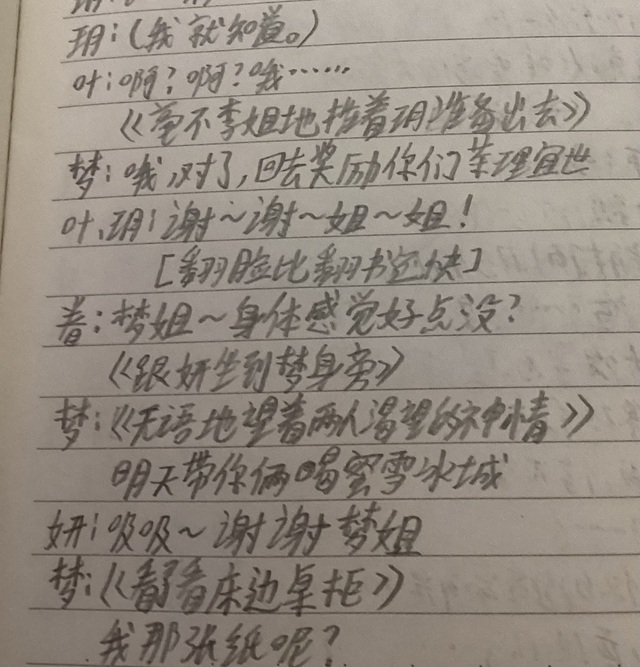 玥:(我就知道。)
叶:啊?啊?哦……
《毫不 姐地 着玥准备出去》
梦:哦,对了,回去奖励你们茶理宜世
叶、玥:谢~谢~姐~姐!
[翻脸比翻书还快]
:梦姐~身体感觉好点没?
《跟妍坐到梦身旁》
梦:《无语地望着两人渴望的神情》
明天带你俩喝蜜雪冰城
妍:吸吸~谢谢梦姐
梦:《看看床边桌柜》
我那张纸呢?